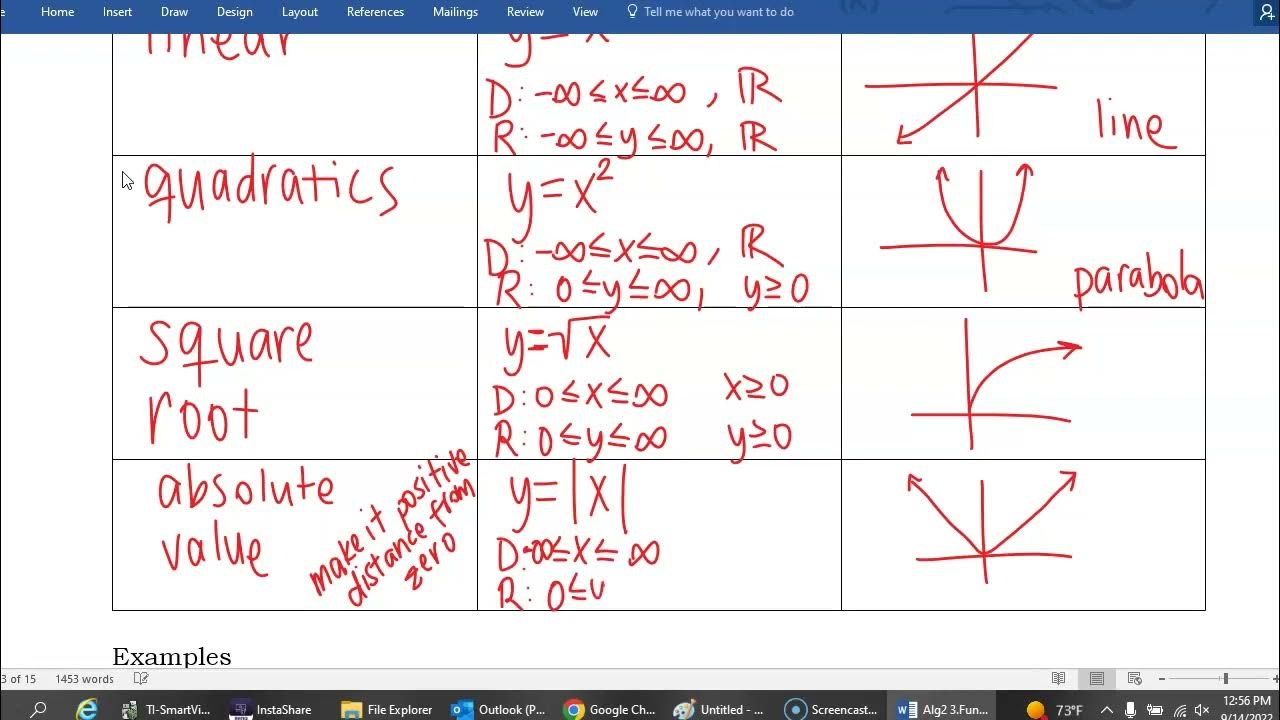 Home Insert Draw Design Layout References Mailings Review View Tell me what you want to do
linear
y = x
D: -∞ ≤ x ≤ ∞ , ℝ
R: -∞ ≤ y ≤ ∞, ℝ
line
quadratics
y = x²
D: -∞ ≤ x ≤ ∞ , ℝ
R: 0 ≤ y ≤ ∞, y ≥ 0
parabola
square
root
y = √x
D: 0 ≤ x ≤ ∞ x ≥ 0
R: 0 ≤ y ≤ ∞ y ≥ 0
absolute
value
make it positive
distance from
zero
y = |x|
D: -∞ ≤ x ≤ ∞
R: 0 ≤
Examples
3 of 15 1453 words
TI-SmartVi... InstaShare File Explorer Outlook (P... Google Chr... Untitled - ... Screencast... Alg2 3.Fun... 73°F 12:56 PM